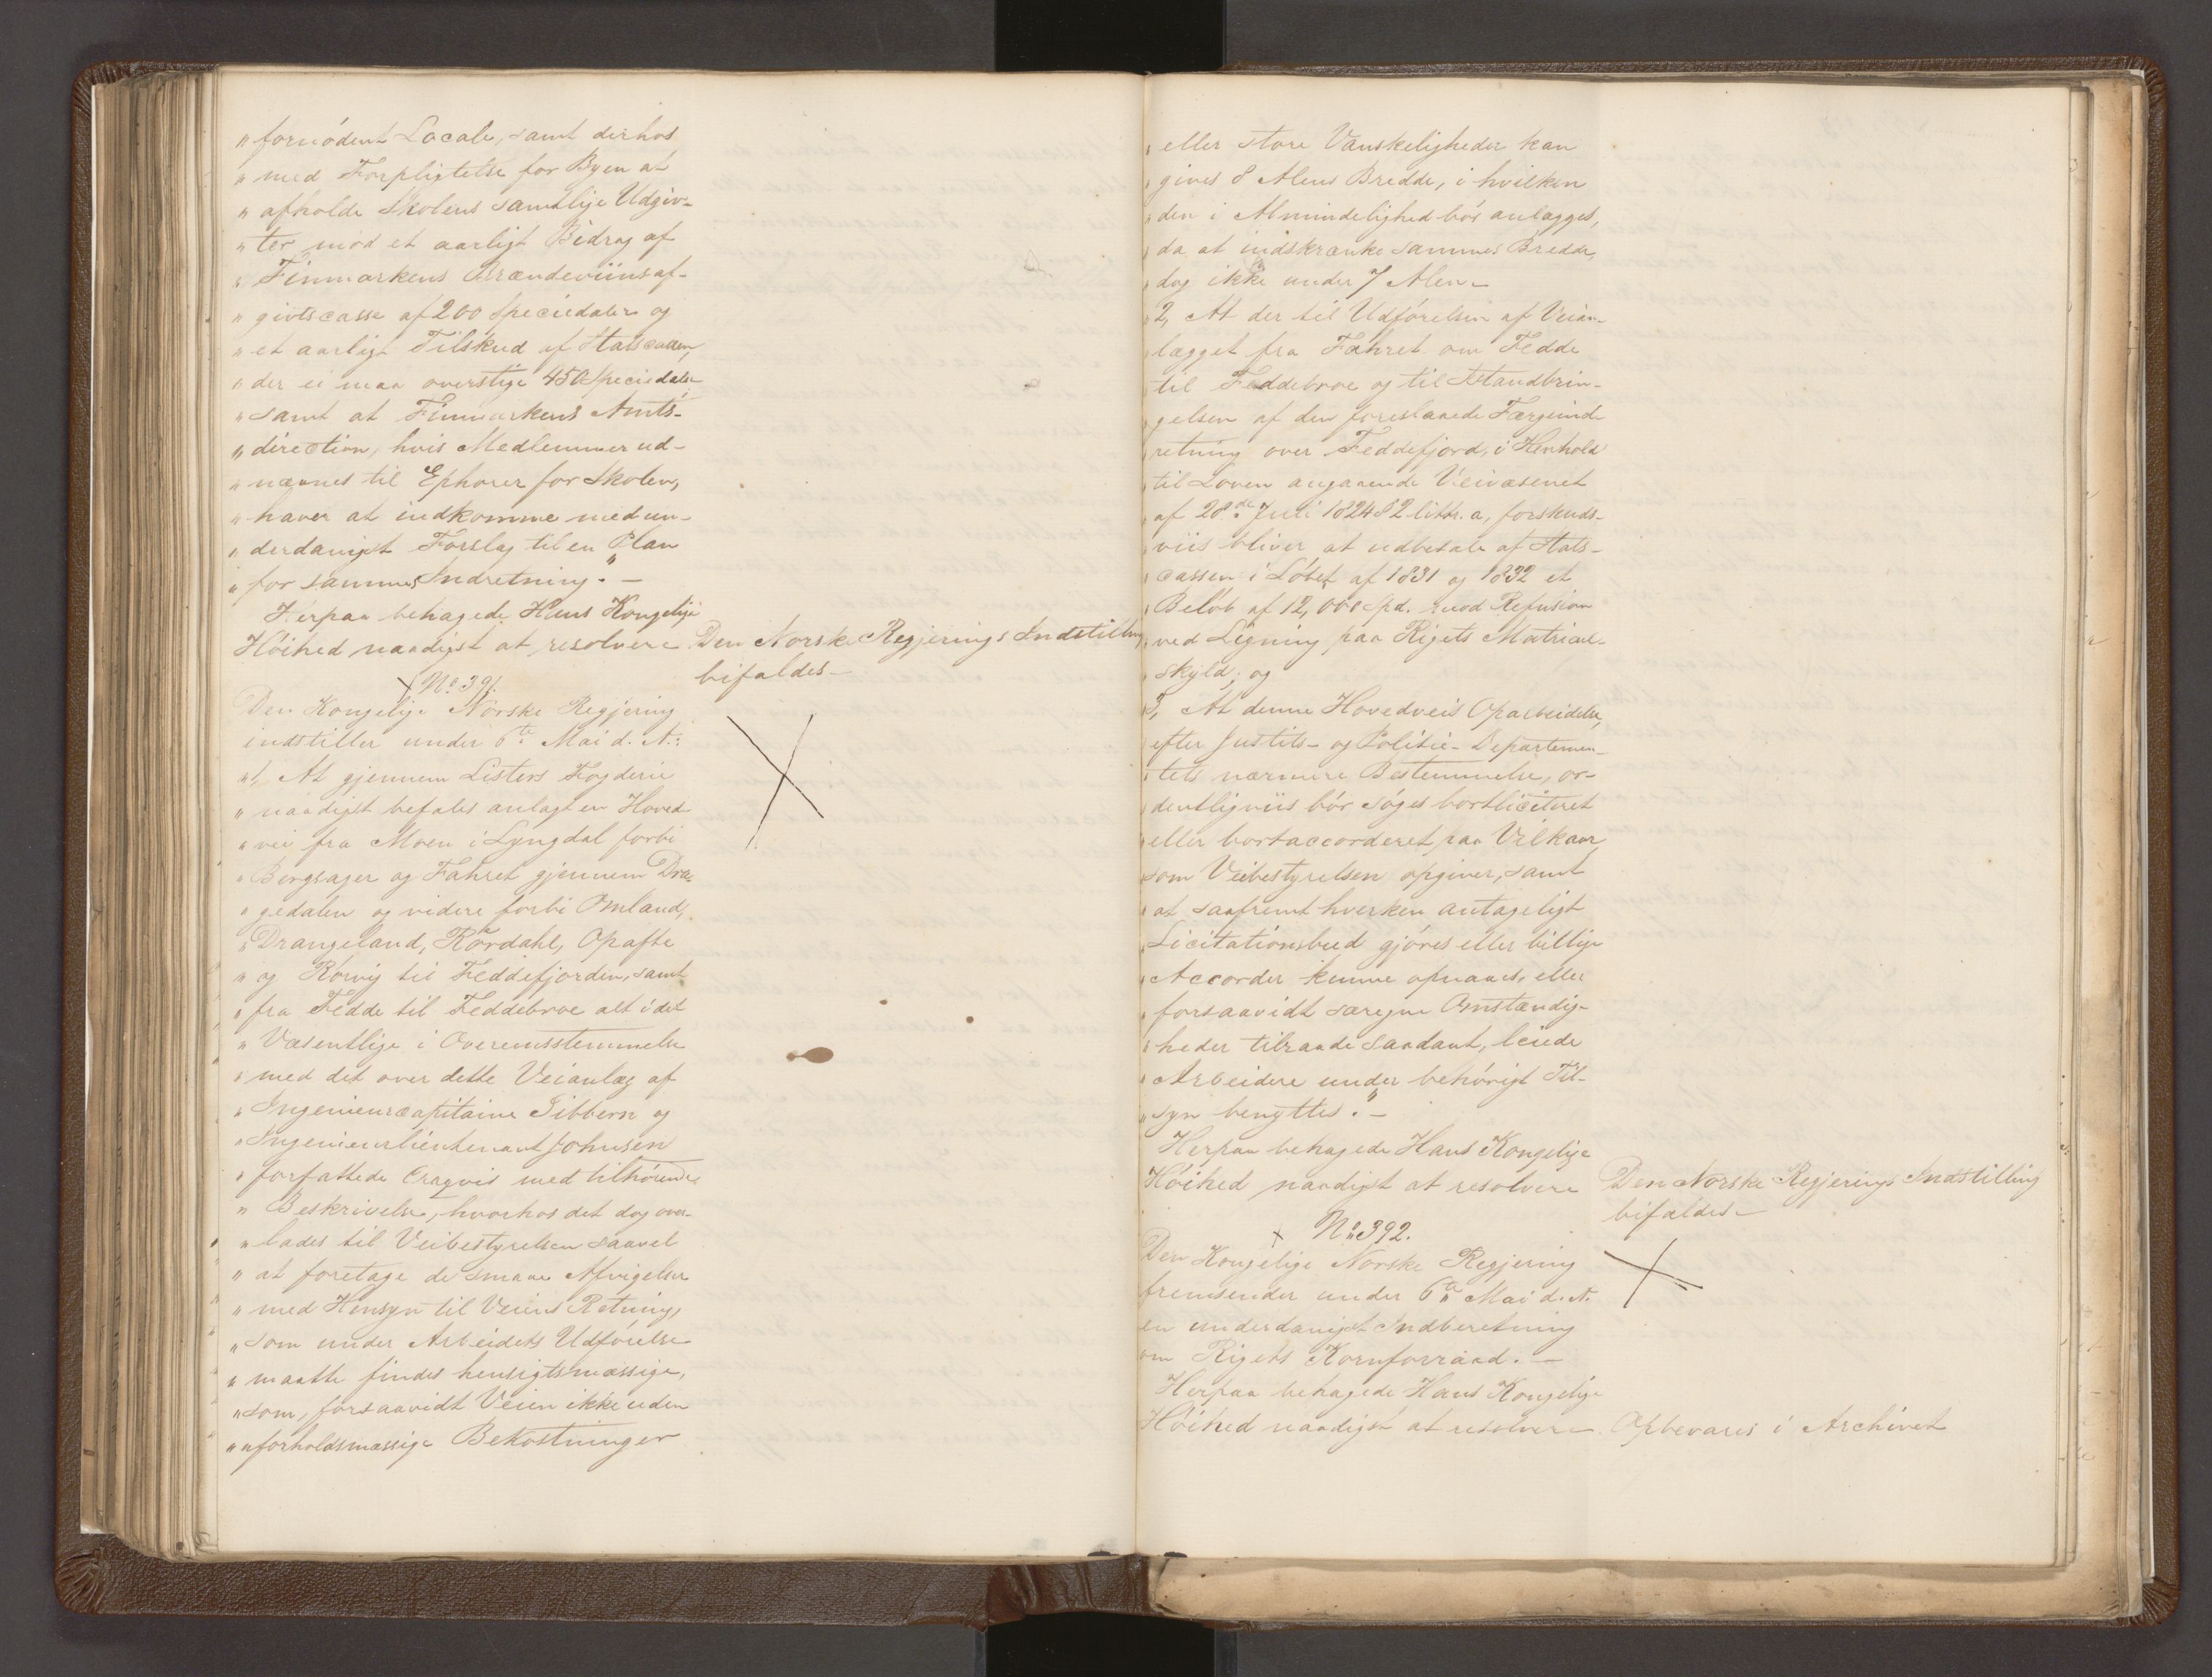 " fornödent Locale, samt derhos
" med Forpligtelse for Byen at
" afholde Skolens samtlige Udgiv-
" ter mod et aarligt Bidrag af
" Finmarkens Brændeviinsaf-
" givtscasse af 200 Speciedaler og
" et aarligt Tilskud af Statscassen,
" der ei maa overstige 450 Speciedaler
" samt at Finmarkens Amts-
" direction, hvis Medlemmer ud-
" nævnes til Ephorer for Skolen,
" haver at indkomme med un-
" derdanigst Forslag til en Plan
" for sammes Indretning." —
Herpaa behagede Hans Kongelige
Höihed naadigst at resolvere Den Norske Regjerings Indstilling
bifaldes —
No 391.
Den Kongelige Norske Regjering
indstiller under 6te Mai d. A.:
" 1, At gjennem Listers Fogderie
" naadigst befales anlagt en Hoved-
" vei fra Moen i Lyngdal forbi
" Bergsager og Fahret gjennem Dra-
" gedalen og videre forbi Omland,
" Drangeland, Rördahl, Opafte
" og Rörvig til Feddefjorden, samt
" fra Fedde til Feddebroe alt i det
" Væsentlige i Overeensstemmelse
" med det over dette Veianlæg af
" Ingenieurcapitaine Tibbern og
" Ingenieurlieutenant Johnsen
" forfattede Craqvis med tilhörende
" Beskrivelse, hvorhos det dog over-
" lades til Veibestyrelsen saavel
" at foretage de smaae Afvigelser
" med Hensyn til Veiens Retning,
" som under Arbeidets Udförelse
" maatte findes hensigtsmæssige,
" som, forsaavidt Veien ikke uden
" uforholdsmæssige Bekostninger
" eller store Vanskeligheder kan
" gives 8 Alens Bredde, i hvilken
" den i Almindelighed bör anlægges,
" da at indskrænke sammes Bredde,
" dog ikke under 7 Alen —
" 2, At der til Udförelsen af Veian-
" lægget fra Fahret om Fedde
" til Feddebroe og til Istandbrin-
" gelsen af den foreslaaede Færgeind-
" retning over Feddefjord, i Henhold
" til Loven angaaende Veivæsenet
" af 28de Juli 1824 § 2 littr. a, forskuds-
" viis bliver at udbetale af Stats-
" cassen i Löbet af 1831 og 1832 et
" Belöb af 12,000 Spd. mod Refusion
" ved Ligning paa Rigets Matricul-
" skyld; og
" 3, At denne Hovedveis Oparbeidelse,
" efter Justits- og Politie-Departemen-
" tets nærmere Bestemmelse, or-
" dentligviis bör söges bortliciteret
" eller bortaccorderet paa Vilkaar
" som Veibestyrelsen opgiver, samt
" at saafremt hverken antageligt
" Licitationsbud gjöres eller billige
" Accorder kunne opnaaes, eller
" forsaavidt særegne Omstændig-
" heder tilraade saadant, leiede
" Arbeidere under behörigt Til-
" syn benyttes." —
Herpaa behagede Hans Kongelige
Höihed naadigst at resolvere Den Norske Regjerings Indstilling
bifaldes —
No 392.
Den Kongelige Norske Regjering
fremsender under 6te Mai d. A.
en underdanigst Indberetning
om Rigets Kornforraad. —
Herpaa behagede Hans Kongelige
Höihed naadigst at resolvere Opbevares i Archivet